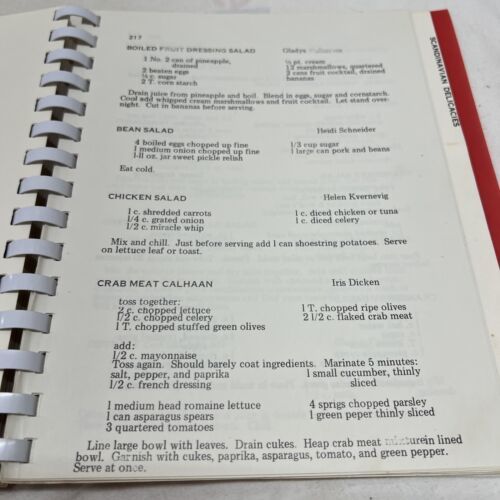 217
BOILED FRUIT DRESSING SALAD Gladys
1 No. 2 can of pineapple, drained ½ pt. cream
2 beaten eggs 12 marshmallows, quartered
¾ c. sugar 2 cans fruit cocktail, drained
2 T. corn starch bananas
Drain juice from pineapple and boil. Blend in eggs, sugar and cornstarch.
Cool add whipped cream marshmallows and fruit cocktail. Let stand over-
night. Cut in bananas before serving.
BEAN SALAD Heidi Schneider
4 boiled eggs chopped up fine 1/3 cup sugar
1 medium onion chopped up fine 1 large can pork and beans
1-11 oz. jar sweet pickle relish
Eat cold.
CHICKEN SALAD Helen Kvernevig
1 c. shredded carrots 1 c. diced chicken or tuna
1/4 c. grated onion 1 c. diced celery
1/2 c. miracle whip
Mix and chill. Just before serving add 1 can shoestring potatoes. Serve
on lettuce leaf or toast.
CRAB MEAT CALHAAN Iris Dicken
toss together:
2 c. chopped lettuce 1 T. chopped ripe olives
1/2 c. chopped celery 2 1/2 c. flaked crab meat
1 T. chopped stuffed green olives
add:
1/2 c. mayonnaise
Toss again. Should barely coat ingredients. Marinate 5 minutes:
salt, pepper, and paprika 1 small cucumber, thinly
1/2 c. french dressing sliced
1 medium head romaine lettuce 4 sprigs chopped parsley
1 can asparagus spears 1 green peper thinly sliced
3 quartered tomatoes
Line large bowl with leaves. Drain cukes. Heap crab meat mixturein lined
bowl. Garnish with cukes, paprika, asparagus, tomato, and green pepper.
Serve at once.
SCANDINAVIAN DELICACIES